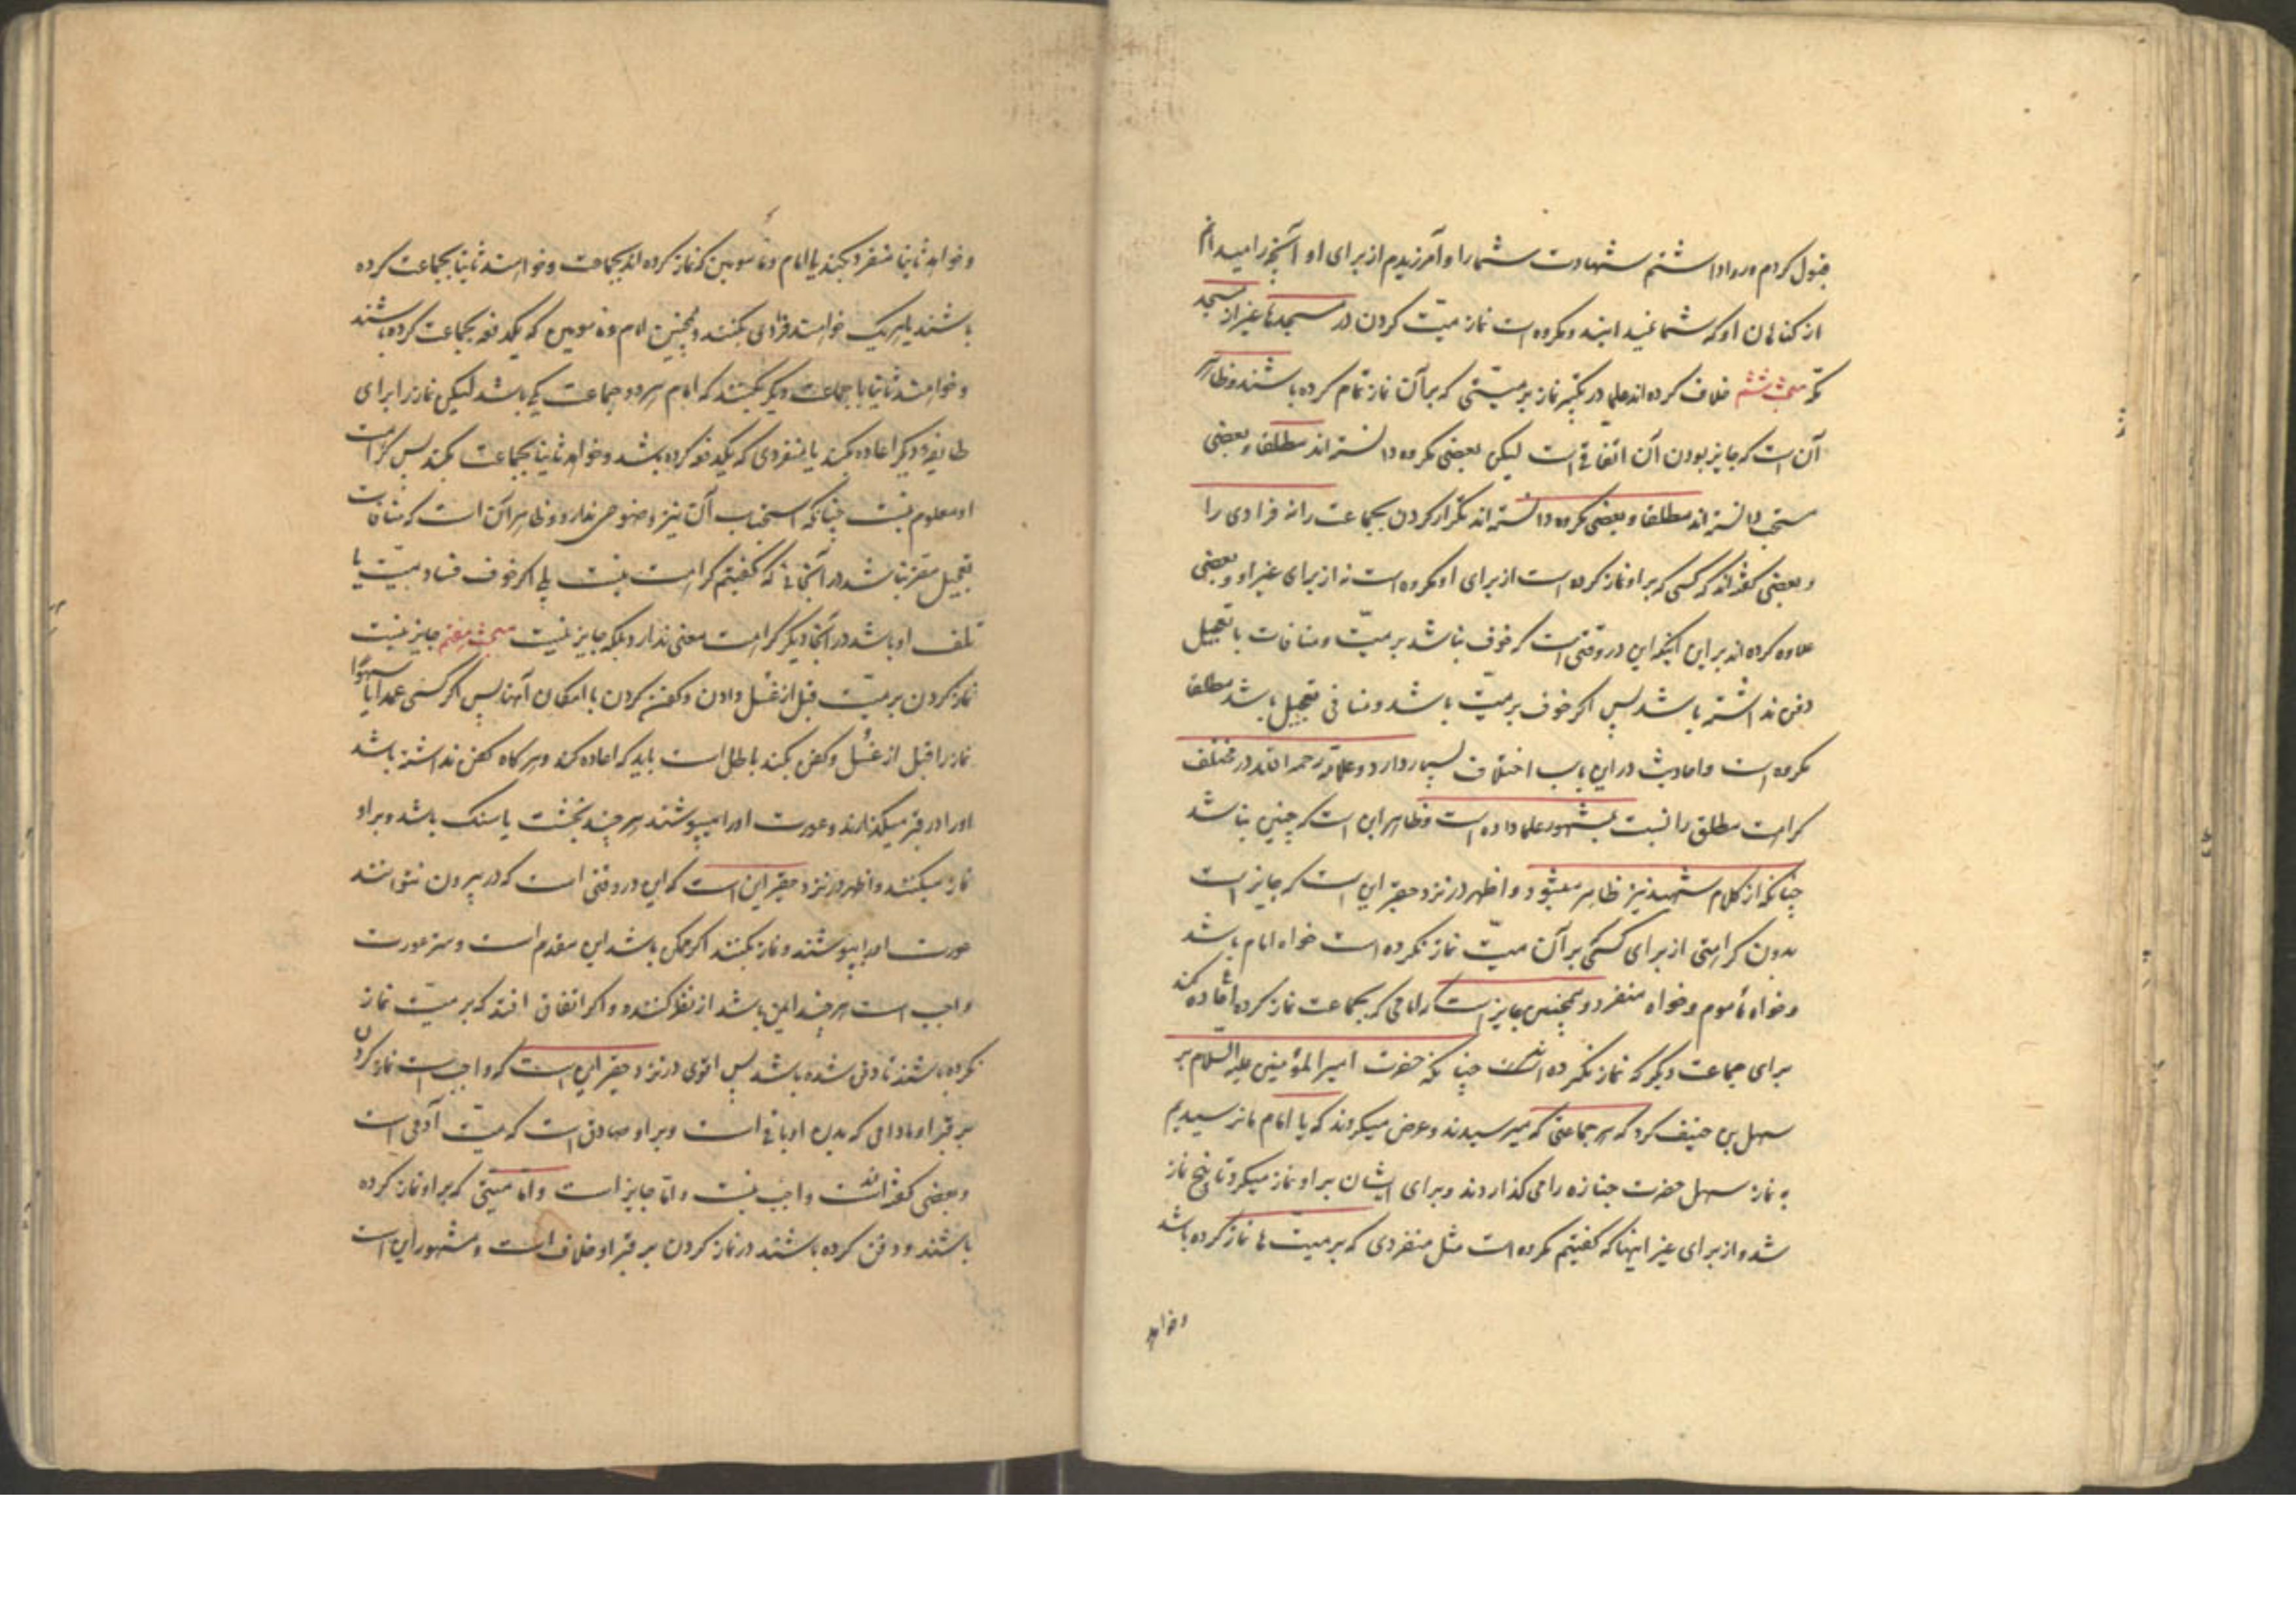 قبول کردم و روا داشتم شهادت شما را و آمرزیدم از برای او آنچه را میدانم
از کناهان او که شما نمیدانید و مکروه است نماز میت کردن در مسجدها غیر از مسجد
مکه مبحث ششم خلاف کرده اند علما در تکریر نماز بر میّتی که بر آن نماز تمام کرده باشند و ظاهر
آن است که جایز بودن آن اتفاقی است لیکن بعضی مکروه دانسته اند مطلقا و بعضی
مستحب دانسته اند مطلقا و بعضی مکروه دانسته اند تکرار کردن بجماعت را نه فرادی را
و بعضی کفته اند که کسی که بر او نماز کرده است از برای او مکروه است نه از برای غیر او و بعضی
علاوه کرده اند بر این اینکه این در وقتی است که خوف نباشد بر میّت و منافات با تعجیل
دفن نداشته باشد پس اکر خوف بر میّت باشد و منافی تعجیل باشد مطلقا
مکروه است و احادیث در این باب اختلاف بسیار دارد و علامه رحمه الله در مختلف
کراهت مطلق را نسبت بمشهور علما داده است و ظاهر این است که چنین نباشد
چنانکه از کلام شهید نیز ظاهر میشود و اظهر در نزد حقیر این است که جایز است
بدون کراهتی از برای کسی که بر آن میّت نماز نکرده است خواه امام باشد
و خواه مأموم و خواه منفرد و همچنین جایز است که امامی که بجماعت نماز کرده اعاده کند
برای جماعت دیکر که نماز نکرده اند چنانکه حضرت امیر المؤمنین علیه السلام بر
سهل بن حنیف کرد که هر جماعتی که میرسیدند و عرض میکردند که یا امام ما نرسیدیم
به نماز سهل حضرت جنازه را می کذاردند و برای ایشان بر او نماز میکرد تا پنج نماز
شد و از برای غیر اینها که کفتیم مکروه است مثل منفردی که بر میت ها نماز کرده باشد
و خواهد
و خواهد ثانیا منفرد بکند یا امام و مأمومین که نماز کرده اند بجماعت و خواهند ثانیا بجماعت کرده
باشند یا هریک خواهند فرادی بکنند و همچنین امام و مأمومین که یکدفعه بجماعت کرده باشند
و خواهند ثانیا با جماعت دیکر بکنند که امام هر دو جماعت یکی باشد لیکن نماز را برای
طایفه دیکر اعاده بکند یا منفردی که یکدفعه کرده باشد و خواهد ثانیا بجماعت بکند پس کراهت
او معلوم نیست چنانکه استحباب آن نیز وضوحی ندارد و ظاهر آن است که منافات
تعجیل مضر نباشد در آنجائی که کفتیم کراهت نیست بلی اکر خوف فساد میّت یا
تلف او باشد در آنجا دیکر کراهت معنی ندارد بلکه جایز نیست مبحث هفتم جایز نیست
نماز کردن بر میّت قبل از غسل دادن و کفن کردن با امکان آنها پس اکر کسی عمدا یا سهوًا
نماز را قبل از غسل و کفن بکند باطل است باید که اعاده کند و هر کاه کفن نداشته باشد
او را در قبر میکذارند و عورت او را میپوشند هر چند بخشت یا سنک باشد و بر او
نماز میکنند و اظهر در نزد حقیر این است که این در وقتی است که در بیرون نتوانند
عورت او را بپوشند و نماز بکنند اکر ممکن باشد این مقدم است و ستر عورت
واجب است هر چند ایمن باشد از نظر کننده و اکر اتفاق افتد که بر میّت نماز
نکرده باشند تا دفن شده باشد پس اقوی در نزد حقیر این است که واجب است نماز کردن
بر قبر او مادامی که بدن او باقی است و بر او صادق است که میّت آدمی است
و بعضی کفته اند واجب نیست و امّا جایز است و امّا میّتی که بر او نماز کرده
باشند و دفن کرده باشند در نماز کردن بر قبر او خلاف است و مشهور این است